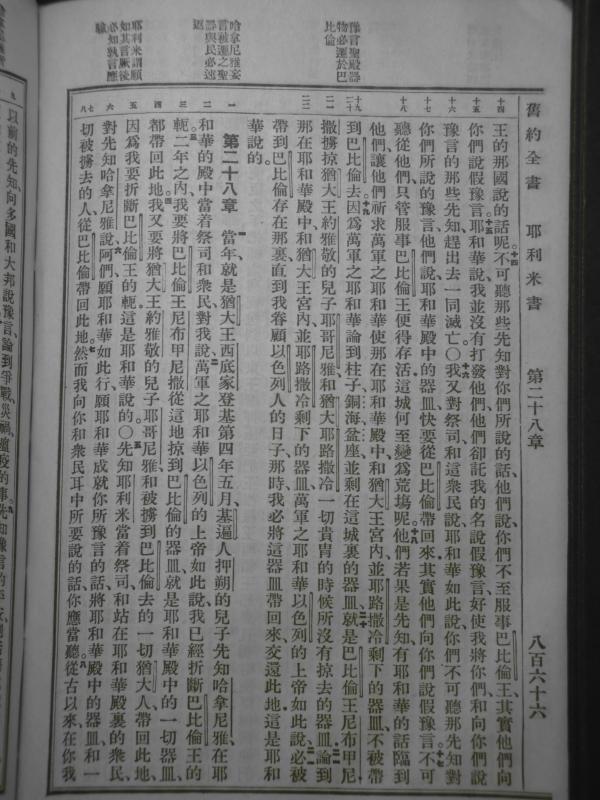 舊約全書 耶利米書 第二十八章 八百六十六
豫言聖殿器
物必運於巴
比倫
哈拿尼雅妄
言被運之聖
器與民必速
耶利米謂願
如其言厥後
必知孰言應
驗
十四 王的那國說的話呢不可聽那些先知對你們所說的話他們說你們不至服事巴比倫王其實他們向
十五 你們說假豫言耶和華說我並沒有打發他們他們卻託我的名說假豫言好使我將你們和向你們說
十六 豫言的那些先知趕出去一同滅亡〇我又對祭司和這衆民說耶和華如此說你們不可聽那先知對
十七 你們所說的豫言他們說耶和華殿中的器皿快要從巴比倫帶回來其實他們向你們說假豫言不可
十八 聽從他們只管服事巴比倫王便得存活這城何至變爲荒塲呢他們若果是先知有耶和華的話臨到
他們讓他們祈求萬軍之耶和華使那在耶和華殿中和猶大王宮內並耶路撒冷剩下的器皿不被帶
十九 到巴比倫去因爲萬軍之耶和華論到柱子銅海盆座並剩在這城裏的器皿就是巴比倫王尼布甲尼
撒擄掠猶大王約雅敬的兒子耶哥尼雅和猶大耶路撒冷一切貴冑的時候所沒有掠去的器皿論到
那在耶和華殿中和猶大王宮內並耶路撒冷剩下的器皿萬軍之耶和華以色列的上帝如此說必被
帶到巴比倫存在那裏直到我眷顧以色列人的日子那時我必將這器皿帶回來交還此地這是耶和
華說的
一 第二十八章 當年就是猶大王西底家登基第四年五月基遍人押朔的兒子先知哈拿尼雅在耶
二 和華的殿中當着祭司和衆民對我說萬軍之耶和華以色列的上帝如此說我已經折斷巴比倫王的
三 軛二年之內我要將巴比倫王尼布甲尼撒從這地掠到巴比倫的器皿就是耶和華殿中的一切器皿
四 都帶回此地我又要將猶大王約雅敬的兒子耶哥尼雅和被擄到巴比倫去的一切猶大人帶回此地
五 因爲我要折斷巴比倫王的軛這是耶和華說的〇先知耶利米當着祭司和站在耶和華殿裏的衆民
六 對先知哈拿尼雅說阿們願耶和華如此行願耶和華成就你所豫言的話將耶和華殿中的器皿和一
七 切被擄去的人從巴比倫帶回此地然而我向你和衆民耳中所要說的話你應當聽從古以來在你我
八 以前的先知向多國和大邦說豫言論到爭戰災禍瘟疫的事先知豫言的平安